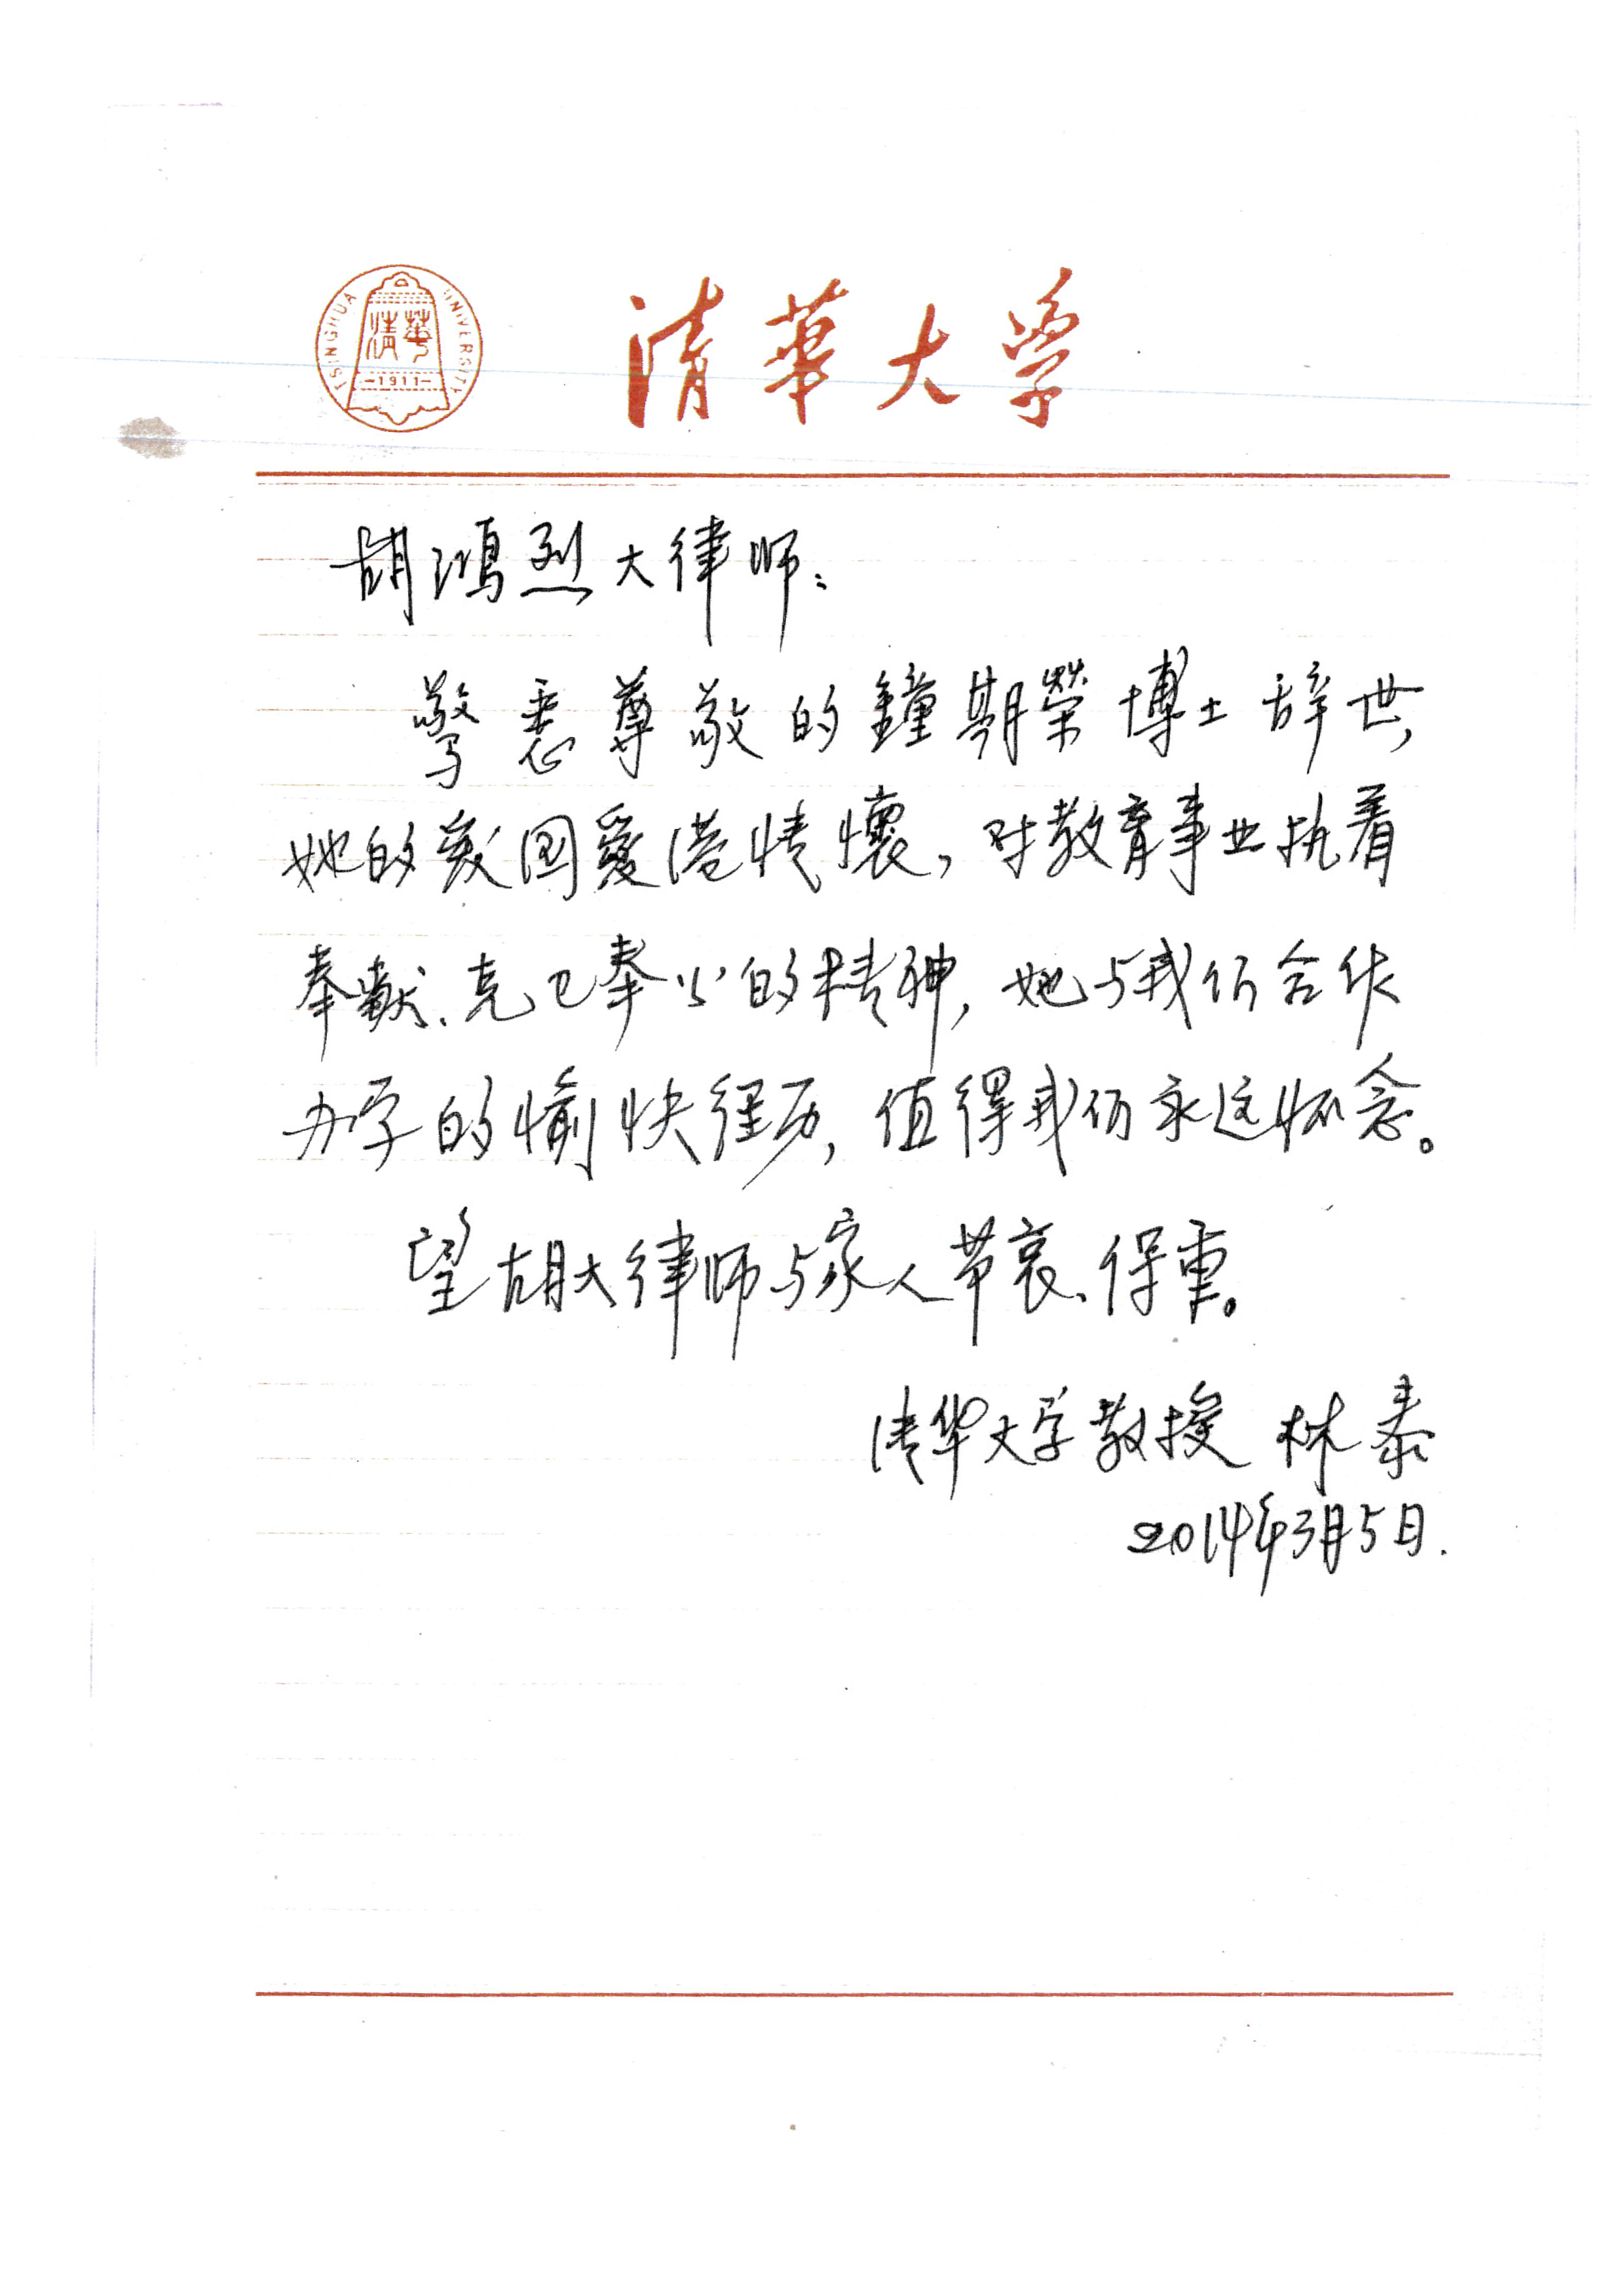 TSINGHUA UNIVERSITY
清華
-1911-
清華大学
胡鸿烈大律师：
驚悉尊敬的鐘期榮博士辞世，
她的爱国愛港情懷，对教育事业执着
奉獻、克己奉公的精神，她与我们合作
办学的愉快经历，值得我们永远怀念。
望胡大律师与家人节哀、保重。
清华大学教授 林泰
2014年3月5日.